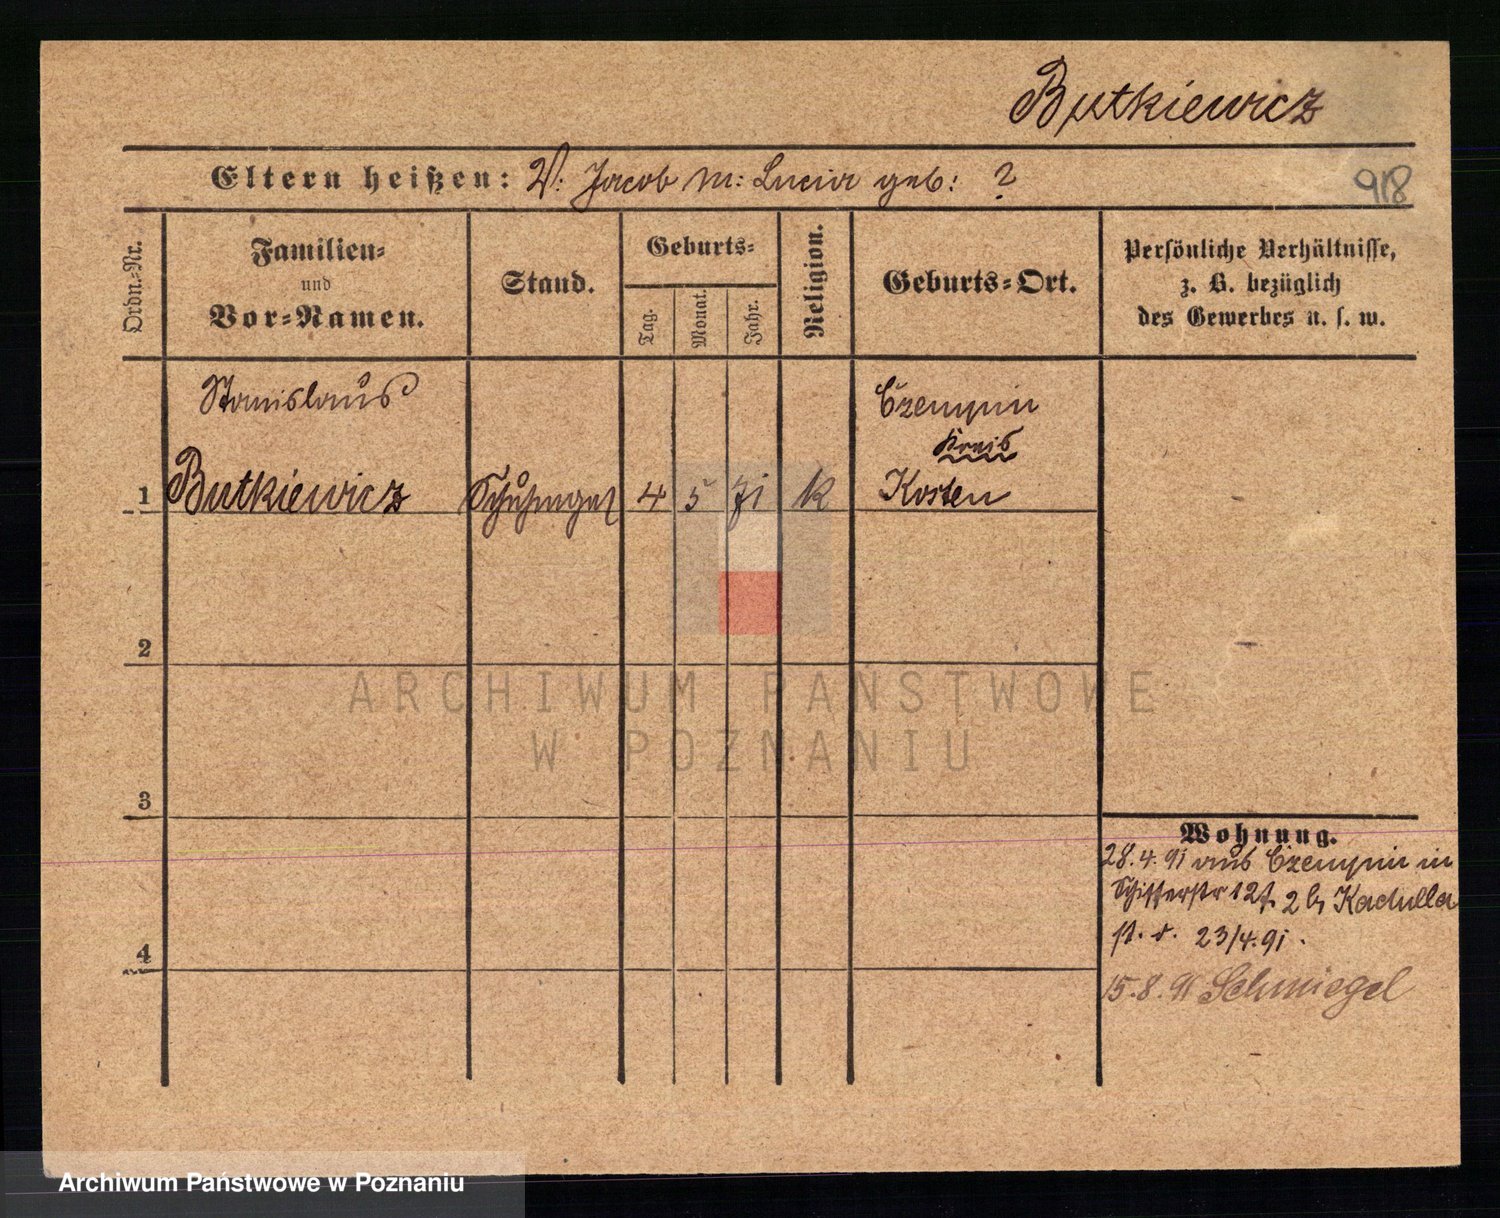 Butkiewicz
Eltern heißen: V: Jacob M: Lucia geb: ?
918
Ordn.-Nr.
Familien-
und
Vor-Namen.
Stand.
Geburts-
Tag.
Monat.
Jahr.
Religion.
Geburts-Ort.
Persönliche Verhältnisse,
z. B. bezüglich
des Gewerbes u. s. w.
Stanislaus
Czempin
Kreis
1 Butkiewicz Schuhmgel 4 5 71 k Kosten
2
ARCHIWUM PAŃSTWOWE
W POZNANIU
3
Wohnung.
28.4.91 aus Czempin in
Schifferstr 12 2 b/ Kadulla
23/4.91.
4
15.8.91 Schmiegel
Archiwum Państwowe w Poznaniu